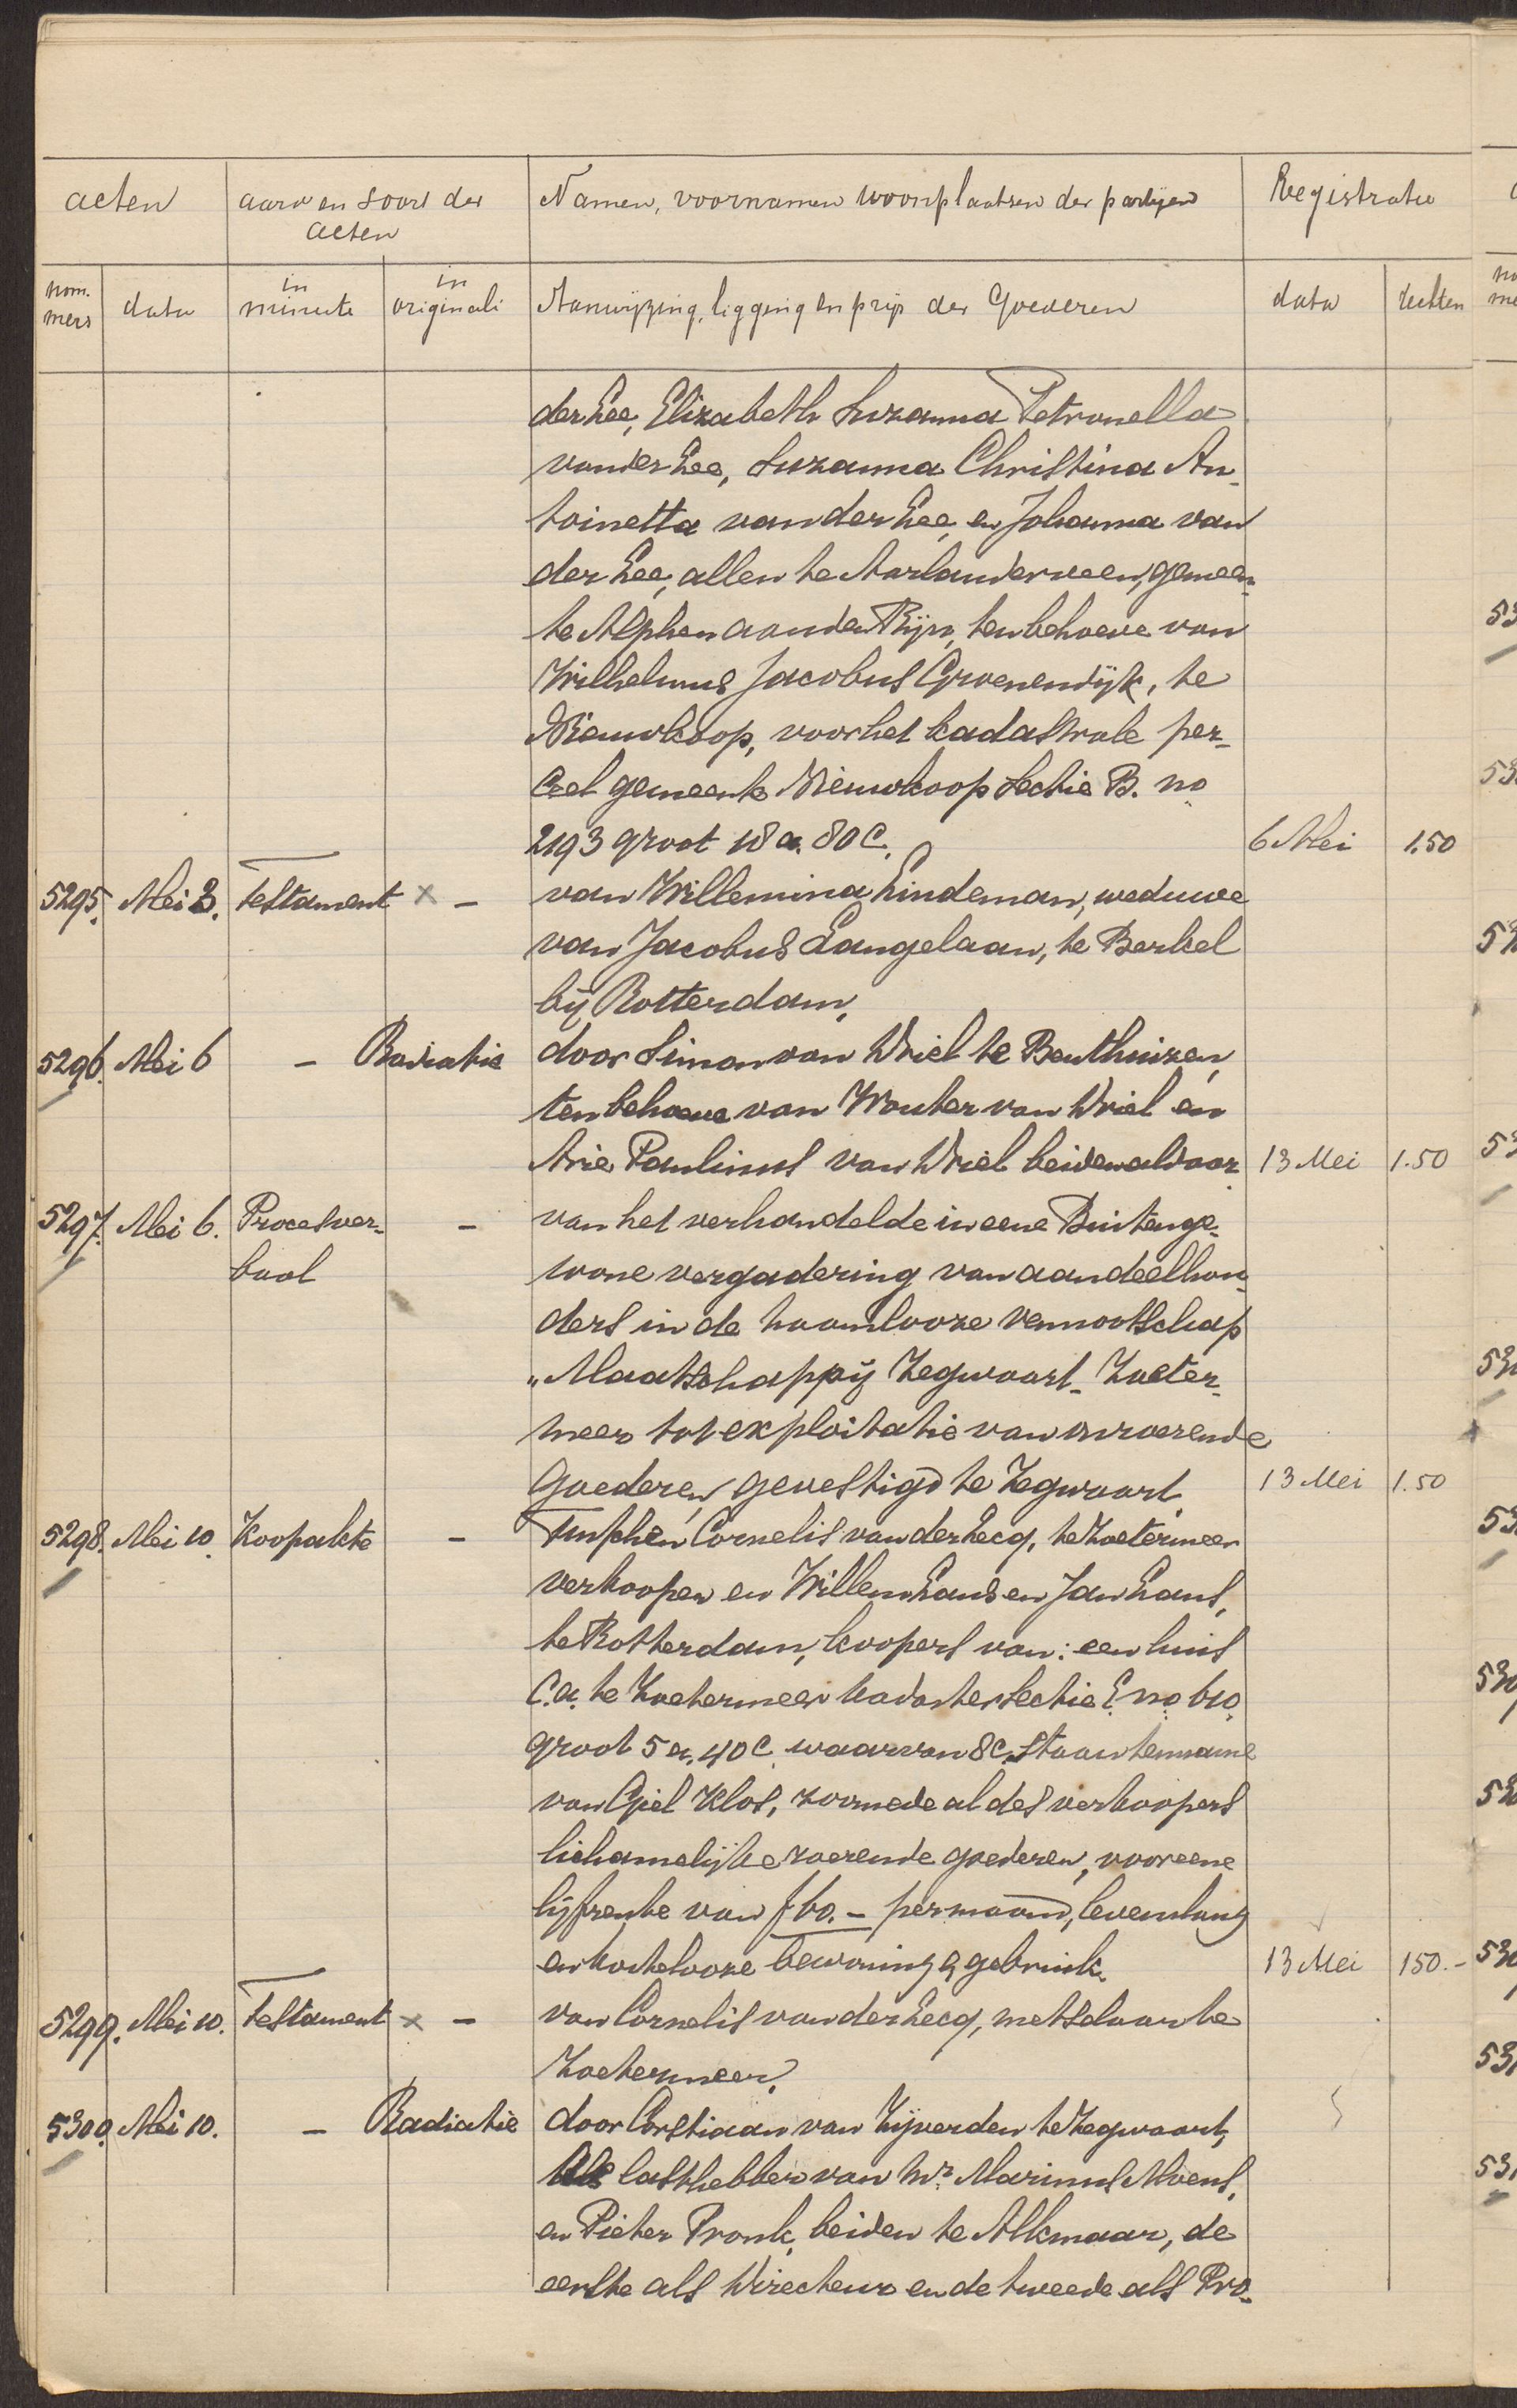 acten aard en soort der Namen, voornamen woonplaatsen der partijen Registratie
acten
nom- in in
mers data minute originali Aanwijzing, ligging en prijs der Goederen data rechten
der Lee, Elizabeth Suzanna Petronella
van der Lee, Suzanna Christina An-
toinetta van der Lee, en Johanna van
der Lee, allen te Aarlanderveen, gemeen-
te Alphen aan den Rijn, ten behoeve van
Wilhelmus Jacobus Groenendijk, te
Nieuwkoop, voor het kadastrale per-
ceel gemeente Nieuwkoop sectie B. no
2193 groot 18 a. 80 c. 6 Mei 1.50
5295. Mei 3. Testament x - van Willemina Lindeman, weduwe
van Jacobus Langelaan, te Berkel
bij Rotterdam,
5296. Mei 6 - Radiatie door Simon van Driel te Benthuizen,
ten behoeve van Wouter van Driel en
Arie Paulinus van Driel beiden aldaar 13 Mei 1.50
5297. Mei 6. Procesver- - van het verhandelde in eene Buitenge-
baal wone vergadering van aandeelhou-
ders in de naamlooze vennootschap
"Maatschappij Zegwaart-Zoeter-
meer tot exploitatie van onroerende
Goederen, gevestigd te Zegwaart 13 Mei 1.50
5298. Mei 10. Koopakte - Tusschen Cornelis van der Lecq, te Zoetermeer
verkooper en Willem Hans en Jan Hans,
te Rotterdam, koopers van: een huis
c.a. te Zoetermeer kadaster sectie E. no. 610.
groot 5 a. 40 c. waarvan 8 c. staan ten name
van Giel Klos, zoomede al des verkoopers
lichamelijke roerende goederen, voor eene
lijfrente van f 60.- per maand, levenslang
en kostelooze bewoning & gebruik. 13 Mei 150.-
5299. Mei 10. Testament x - van Cornelis van der Lecq, metselaar te
Zoetermeer,
5300. Mei 10. - Radiatie door Corstiaan van Zijverden te Zegwaart,
als lasthebber van Mr. Marinus Moens,
en Pieter Pronk, beiden te Alkmaar, de
eerste als Directeur en de tweede als Pro-